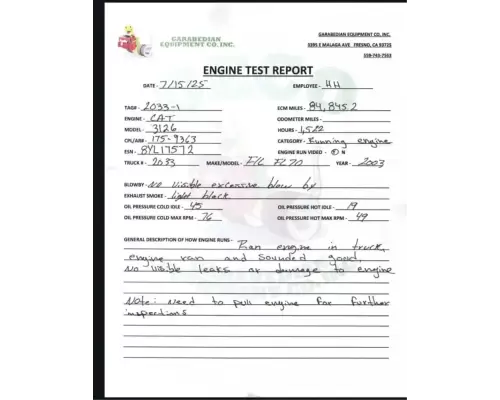 GARABEDIAN
EQUIPMENT CO, INC.
GARABEDIAN EQUIPMENT CO, INC.
3395 E MALAGA AVE FRESNO, CA 93725
ENGINE TEST REPORT
DATE - 7/15/25 EMPLOYEE - HH
TAG# - 2033-1 ECM MILES - 84,845.2
ENGINE - CAT ODOMETER MILES -
MODEL - 3126 HOURS - 1,522
CPL/AR# - 175-9363 CATEGORY - Running engine
ESN - 8YL17572 ENGINE RUN VIDEO - Y N
TRUCK # - 2033 MAKE/MODEL - F/L FL70 YEAR - 2003
BLOWBY - No visible excessive blow by
EXHAUST SMOKE - light black
OIL PRESSURE COLD IDLE - 45 OIL PRESSURE HOT IDLE - 19
OIL PRESSURE COLD MAX RPM - 76 OIL PRESSURE HOT MAX RPM - 49
GENERAL DESCRIPTION OF HOW ENGINE RUNS - Ran engine in truck,
engine ran and sounded good.
No visible leaks or damage to engine
Note: need to pull engine for further
inspections